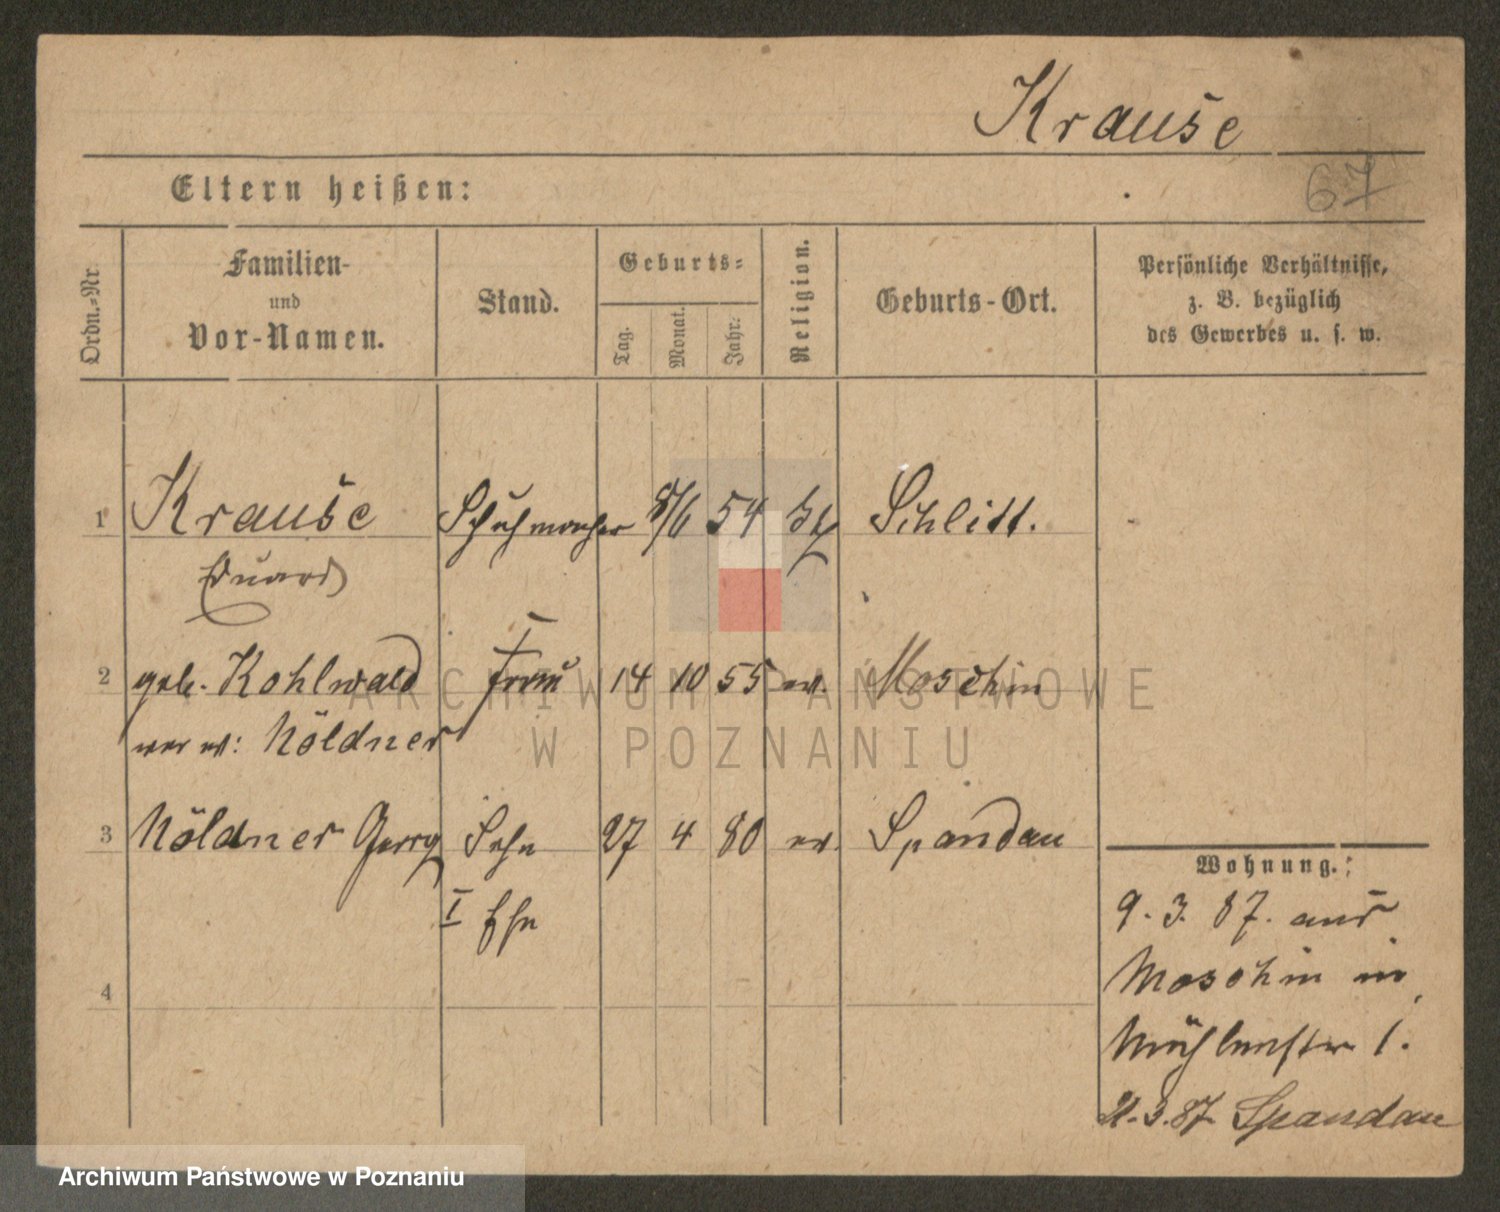 Krause
67
Eltern heißen:
Ordn.-Nr.
Familien-
und
Vor-Namen.
Stand.
Geburts-
Tag.
Monat.
Jahr.
Religion.
Geburts-Ort.
Persönliche Verhältnisse,
z. B. bezüglich
des Gewerbes u. s. w.
1 Krause Schuhmacher 8/6 54 Schlitt.
Eduard
2 geb. Kohlwald Frau 14 10 55 ev. Moschin
verw: Nöldner
3 Nöldner Georg Sohn 27 4 80 ev. Spandau
I Ehe
4
Wohnung.
9.3.87. aus
Moschin in
Mühlenstr 1.
21.3.87 Spandau
ARCHIWUM PAŃSTWOWE
W POZNANIU
Archiwum Państwowe w Poznaniu